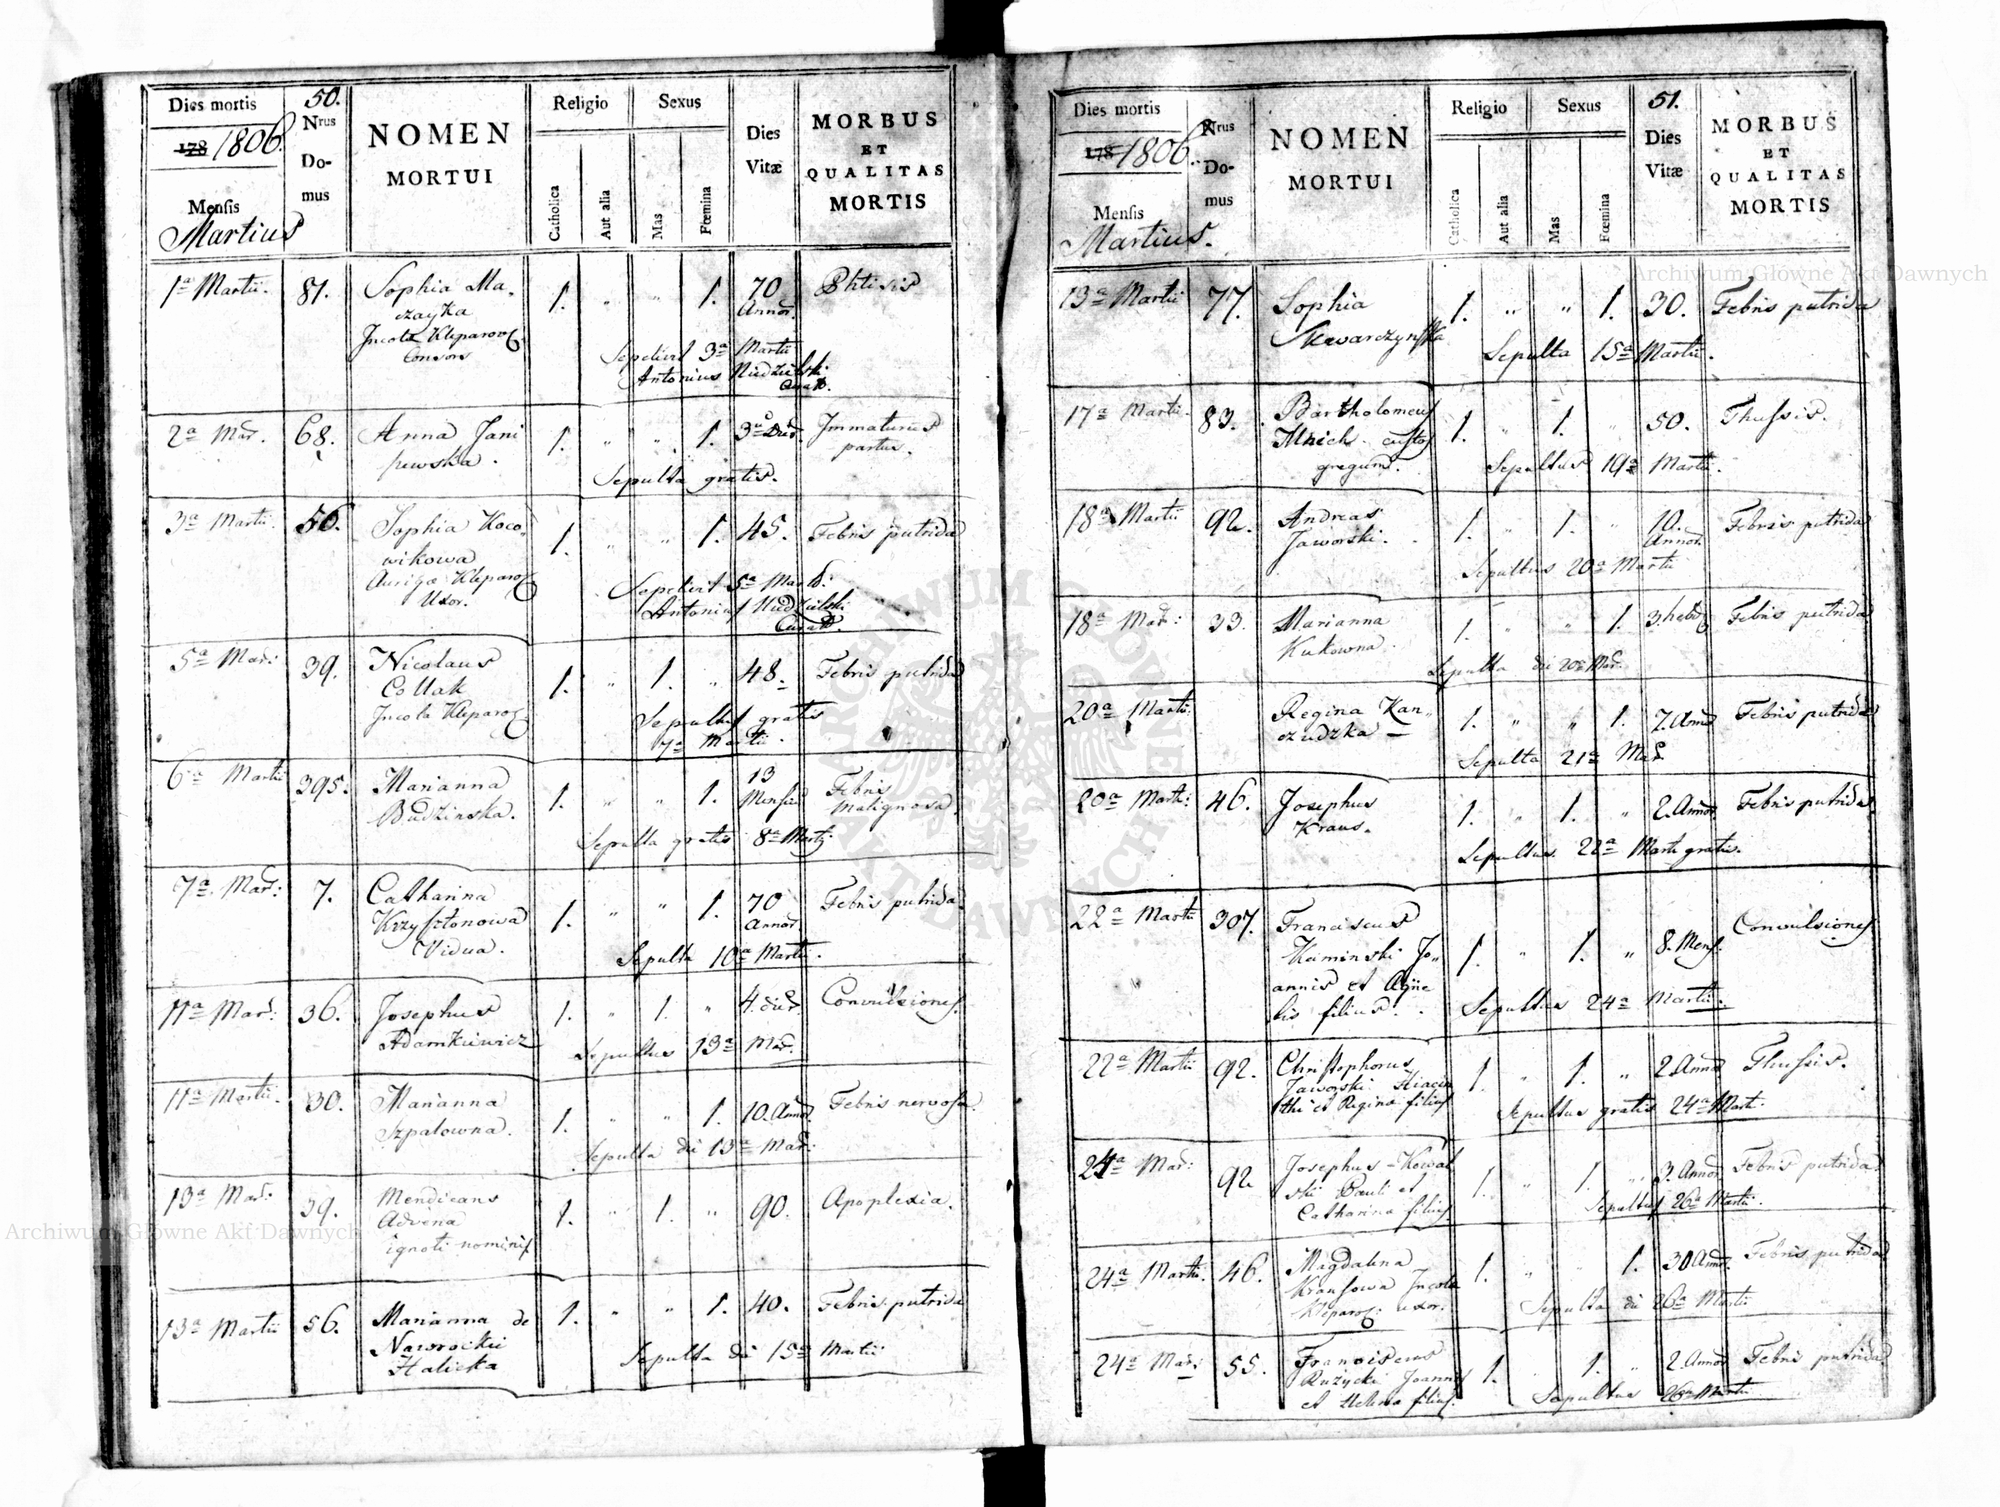 50.
Dies mortis
Nrus Domus
NOMEN MORTUI
Religio
Sexus
Dies Vitæ
MORBUS ET QUALITAS MORTIS
178 1806.
Mensis
Martius
Catholica
Aut alia
Mas
Fœmina
1a Martii. 81. Sophia Ma- 1. " " 1. 70 Phtisis
czayka Annor.
Incola Kleparov.
Consors
Sepelivit 3a Martii
Antonius Niedzielski
2a Mar. 68. Anna Jani 1. " " 1. 3u Immaturus
partus.
Sepulta gratis.
3a Martii 56. Sophia Koco- 1. " " 1. 45. Febris putrida
wikowa
Aurigæ Kleparov
Uxor.
Sepelivit 5a Martii
Antonius Niedzielski
5a Mar: 39. Nicolaus 1. " 1. " 48. Febris putrida
Collak
Incola Kleparov
Sepultus gratis
7a Martii.
6a Martii 395. Marianna 1. " " 1. 13 Febris
Budzinska. Mensium malignosa.
Sepulta gratis 8a Martij
7a. Mar: 7. Catharina 1. " " 1. 70 Febris putrida.
Krzysztonowa Annor.
Vidua.
Sepulta 10a Martii.
11a Mar: 36. Josephus 1. " 1. " 4. dier. Convulsiones.
Adamkiewicz
Sepultus 13a Mar.
11a Martii. 30. Marianna 1. " " 1. 10. Annor. Febris nervosa.
Szpalowna.
Sepulta die 13a Mar:
13a Mar: 39. Mendicans 1. " 1. " 90. Apoplexia.
Advena
ignoti nominis
13a Martii 56. Marianna de 1. " " 1. 40. Febris putrida
Nawrockie
Halicka
Sepulta die 15a Martii
51.
Dies mortis
Nrus Domus
NOMEN MORTUI
Religio
Sexus
Dies Vitæ
MORBUS ET QUALITAS MORTIS
178 1806.
Mensis
Martius.
Catholica
Aut alia
Mas
Fœmina
13a Martii 77. Sophia 1. " " 1. 30. Febris putrida
Skwarczynska
Sepulta 15a Martii.
17a Martii. 83. Bartholomeus 1. " 1. " 50. Thussis.
Mnich custos
gregum.
Sepultus 19a Martii.
18a Martii 92. Andreas 1. " 1. " 10. Febris putrida
Jaworski. Annor.
Sepultus 20a Martii
18a Mar: 33. Marianna 1. " " 1. 3. hebd. Febris putrida
Kukowna.
Sepulta die 20a Mar.
20a Martii. Regina Kan- 1. " " 1. 7. Annor Febris putrida
czudzka
Sepulta 21a Mar.
20a Marti: 46. Josephus 1. " 1. " 2. Annor Febris putrida.
Kraus.
Sepultus 22a Martii gratis.
22a Martii 307. Franciscus 1. " 1. " 8. Mens. Convulsiones
Kaminski Jo-
annis et Agne
tis filius.
Sepultus 24a Martii.
22a Martii 92. Christophorus 1. " 1. " 2. Annor Thussis.
Jaworski Hiacin
thi et Regina filius
Sepultus gratis 24a Marti.
24a Mar: 92 Josephus Kowal 1. " 1. " 3. Annor Febris putrida
ski Pauli et
Catharina filius.
Sepultus 26a Martii.
24a Martii. 46. Magdalena 1. " " 1. 30 Annor. Febris putrida
Krausowa Incolæ
Kleparov. uxor.
Sepulta die 26a Martii
24a Mar: 55. Franciscus 1. " 1. " 2. Annor Febris putrida
Ruzycki Joannis
et Helena filius.
Sepultus 26a Martii
Archiwum Główne Akt Dawnych
Archiwum Główne Akt Dawnych
ARCHIWUM GŁÓWNE AKT DAWNYCH